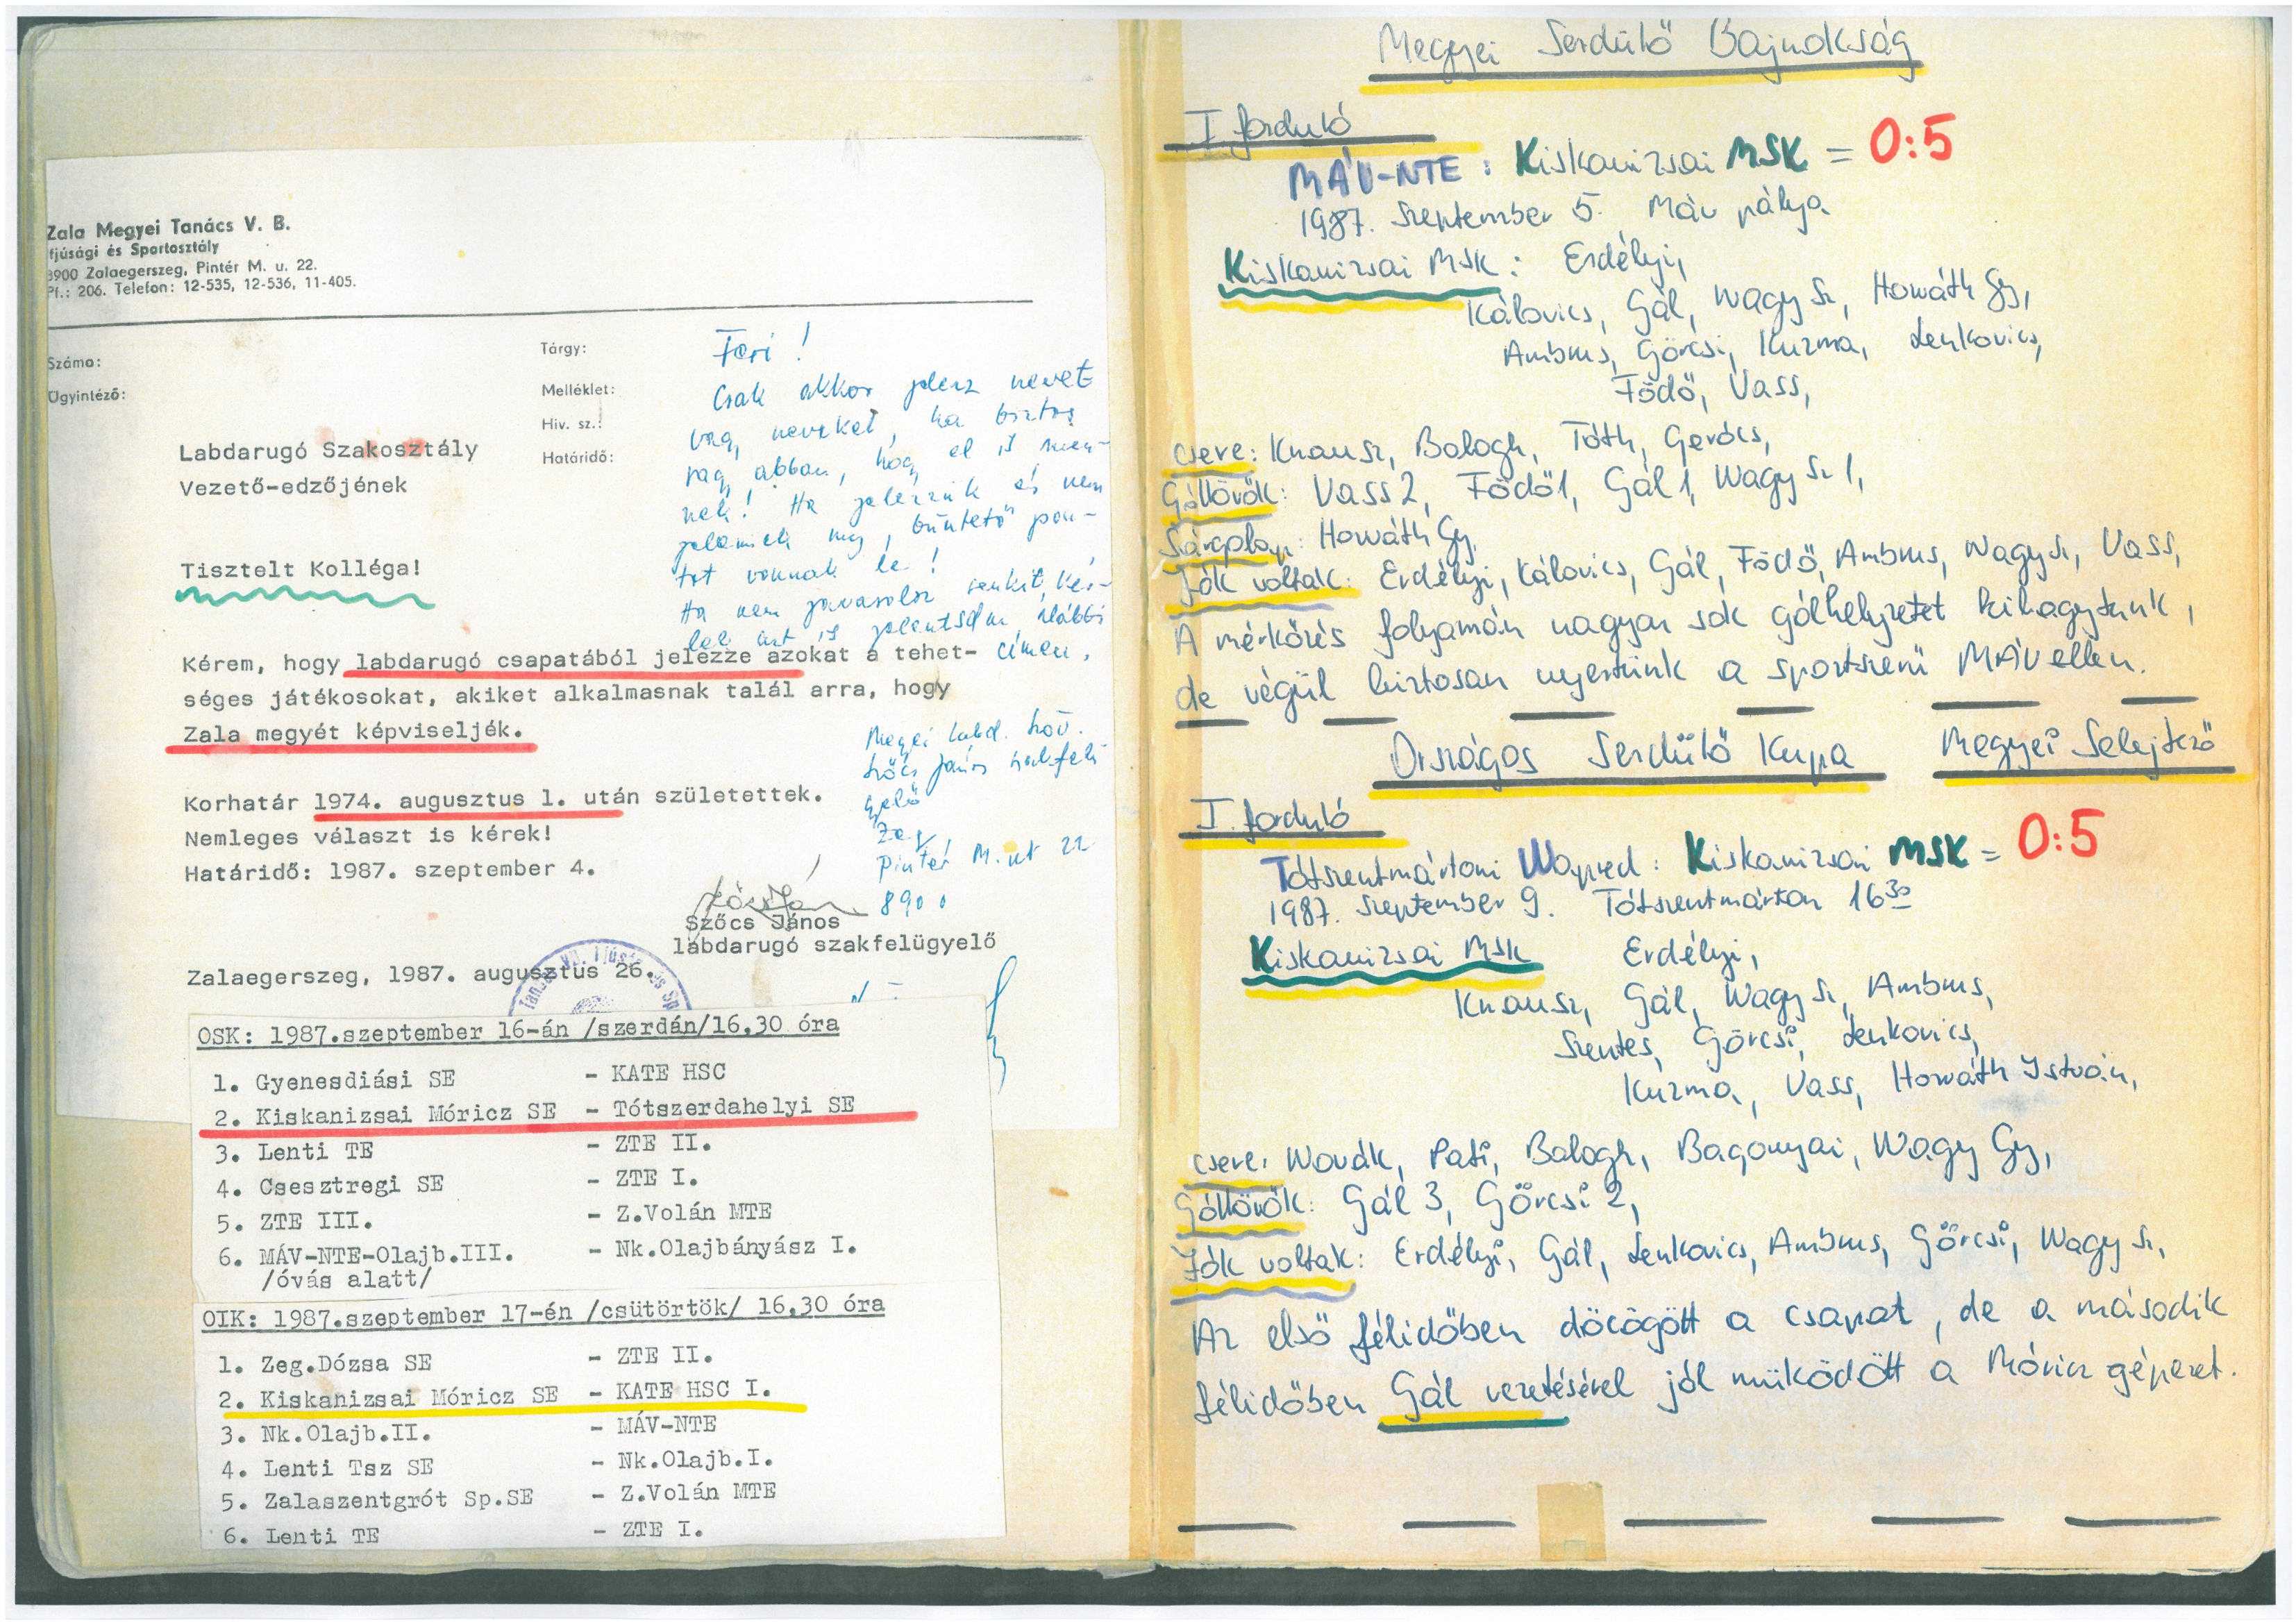 Zala Megyei Tanács V. B.
fjúsági és Sportosztály
8900 Zalaegerszeg, Pintér M. u. 22.
Pf.: 206. Telefon: 12-535, 12-536, 11-405.
Száma:
Ügyintéző:
Tárgy:
Melléklet:
Hiv. sz.:
Határidő:
Feri!
Csak akkor jelezz nevet
vagy neveket, ha biztos
vagy abban, hogy el is men-
nek! Ha jelezzük és nem
jelennek meg, büntető pon-
tot vonnak le!
Ha nem javasolsz senkit, kér-
lek azt is jelentsd az alábbi
címen,
Megyei labd. Szöv.
Szőcs János szakfelü
gyelő
Zeg
Pintér M. ut 22
8900
Labdarugó Szakosztály
Vezető-edzőjének
Tisztelt Kolléga!
Kérem, hogy labdarugó csapatából jelezze azokat a tehet-
séges játékosokat, akiket alkalmasnak talál arra, hogy
Zala megyét képviseljék.
Korhatár 1974. augusztus 1. után születettek.
Nemleges választ is kérek!
Határidő: 1987. szeptember 4.
Szőcs János
labdarugó szakfelügyelő
Zalaegerszeg, 1987. augusztus 26.
OSK: 1987.szeptember 16-án /szerdán/16,30 óra
1. Gyenesdiási SE - KATE HSC
2. Kiskanizsai Móricz SE - Tótszerdahelyi SE
3. Lenti TE - ZTE II.
4. Csesztregi SE - ZTE I.
5. ZTE III. - Z.Volán MTE
6. MÁV-NTE-Olajb.III. - Nk.Olajbányász I.
/óvás alatt/
OIK: 1987.szeptember 17-én /csütörtök/ 16,30 óra
1. Zeg.Dózsa SE - ZTE II.
2. Kiskanizsai Móricz SE - KATE HSC I.
3. Nk.Olajb.II. - MÁV-NTE
4. Lenti Tsz SE - Nk.Olajb.I.
5. Zalaszentgrót Sp.SE - Z.Volán MTE
6. Lenti TE - ZTE I.
Megyei Serdülő Bajnokság
I. forduló
MÁV-NTE : Kiskanizsai MSK = 0:5
1987. Szeptember 5. Máv pálya
Kiskanizsai MSK: Erdélyi,
Kálovics, Gál, Nagy Sz, Horváth Gy,
Ambrus, Görcsi, Kuzma, Lenkovics,
Födő, Vass,
csere: Knausz, Balogh, Tóth, Gerócs,
Góllövők: Vass 2, Födő 1, Gál 1, Nagy Sz 1,
Sárgalap: Horváth Gy.
Jók voltak: Erdélyi, Kálovics, Gál, Födő, Ambrus, Nagy Sz, Vass,
A mérkőzés folyamán nagyon sok gólhelyzetet kihagytunk,
de végül biztosan nyertünk a sportszerű MÁV ellen.
Országos Serdülő Kupa Megyei Selejtező
I. forduló
Tótszentmártoni Honvéd : Kiskanizsai MSK = 0:5
1987. Szeptember 9. Tótszentmárton 16 30
Kiskanizsai MSK Erdélyi,
Knausz, Gál, Nagy Sz, Ambrus,
Szentes, Görcsi, Lenkovics,
Kuzma, Vass, Horváth István,
csere: Novák, Pati, Balogh, Bagonyai, Nagy Gy,
Góllövők: Gál 3, Görcsi 2,
Jók voltak: Erdélyi, Gál, Lenkovics, Ambrus, Görcsi, Nagy Sz,
Az első félidőben döcögött a csapat, de a második
félidőben Gál vezetésével jól müködött a Móricz gépezet.